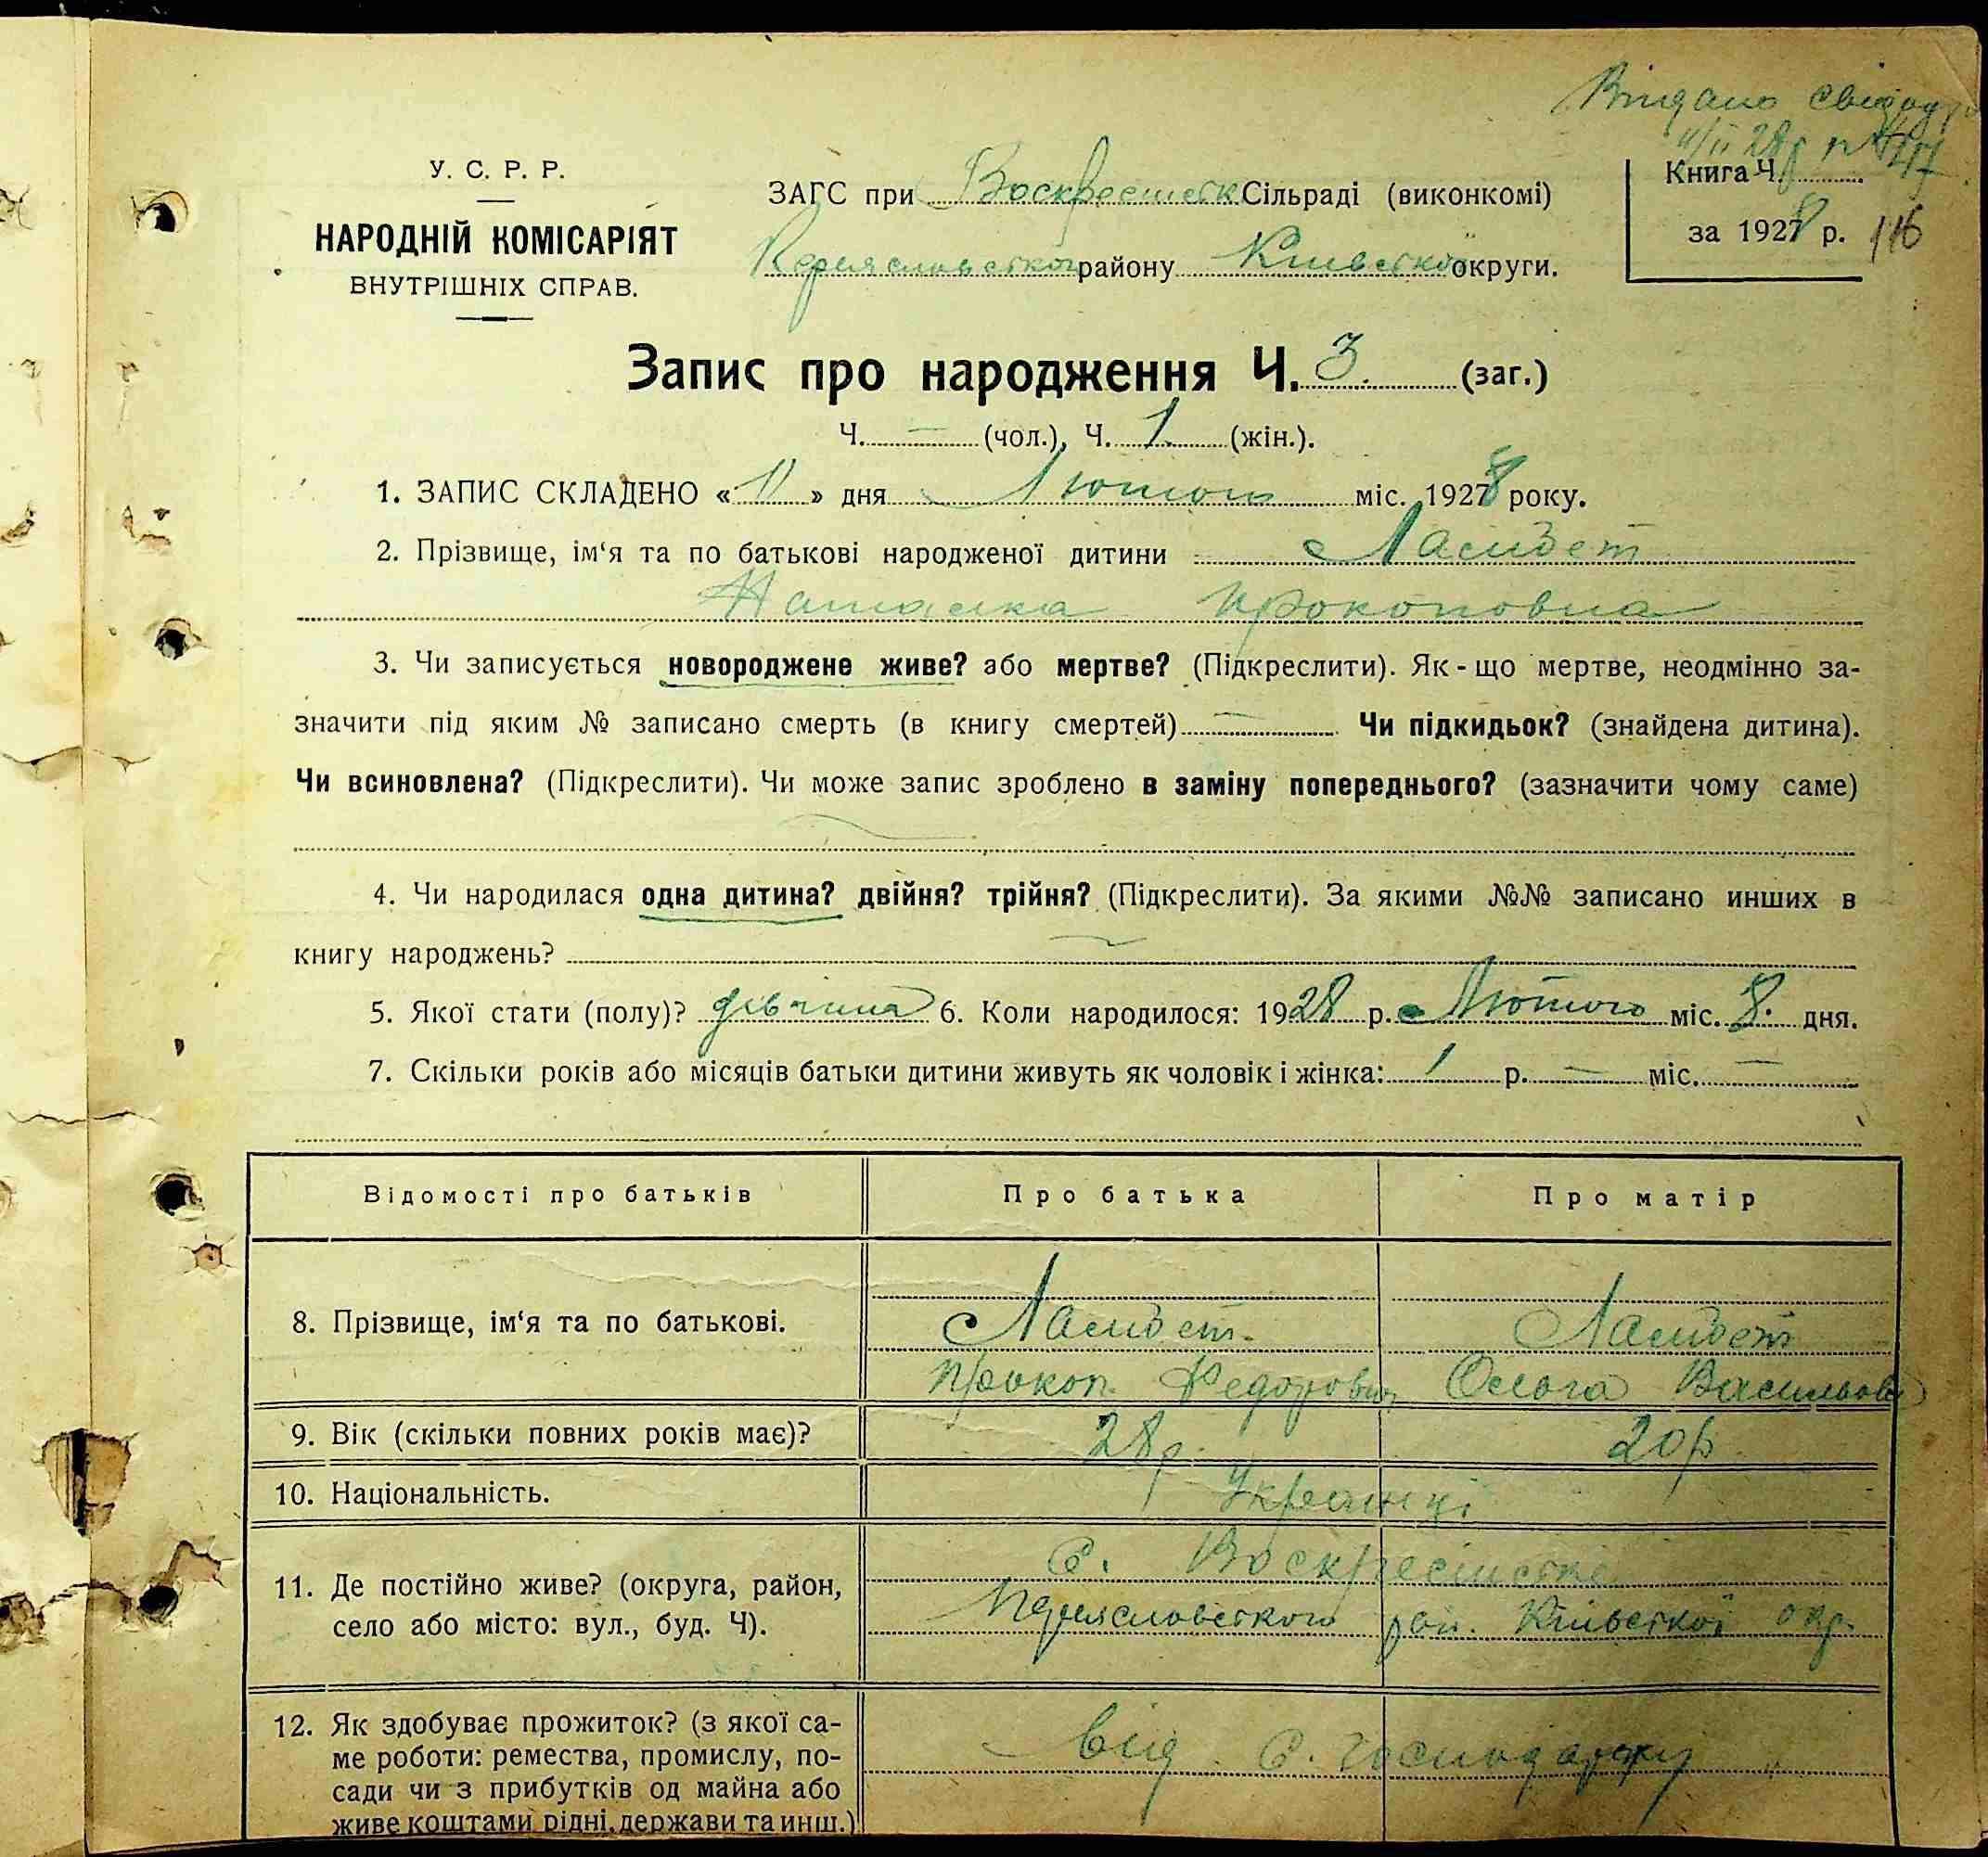 Видано свідоц
11/II 28 р. № 417
У. С. Р. Р.
НАРОДНІЙ КОМІСАРІЯТ
ВНУТРІШНІХ СПРАВ.
ЗАГС при Воскресінськ Сільраді (виконкомі)
Переяславського району Київської округи.
Книга Ч.
за 1928 р. 116
Запис про народження Ч. 3. (заг.)
Ч. — (чол.), Ч. 1 (жін.).
1. ЗАПИС СКЛАДЕНО « 11 » дня Лютого міс. 1928 року.
2. Прізвище, ім‘я та по батькові народженої дитини
Наталка Прокоповна
3. Чи записується новороджене живе? або мертве? (Підкреслити). Як-що мертве, неодмінно за-
значити під яким № записано смерть (в книгу смертей) — Чи підкидьок? (знайдена дитина).
Чи всиновлена? (Підкреслити). Чи може запис зроблено в заміну попереднього? (зазначити чому саме)
4. Чи народилася одна дитина? двійня? трійня? (Підкреслити). За якими №№ записано инших в
книгу народжень?
5. Якої стати (полу)? дівчина 6. Коли народилося: 1928 р. Лютого міс. 8. дня.
7. Скільки років або місяців батьки дитини живуть як чоловік і жінка: 1 р. — міс. —
Відомості про батьків Про батька Про матір
8. Прізвище, ім‘я та по батькові.
Прокоп Федорович Ольга Васильовн
9. Вік (скільки повних років має)? 28 р. 20 р.
10. Національність. Українці
11. Де постійно живе? (округа, район, с. Воскресінське
село або місто: вул., буд. Ч). Переяславського рай. Київської окр.
12. Як здобуває прожиток? (з якої са-
ме роботи: ремества, промислу, по- від с. господарки „
сади чи з прибутків од майна або
живе коштами рідні, держави та инш.)